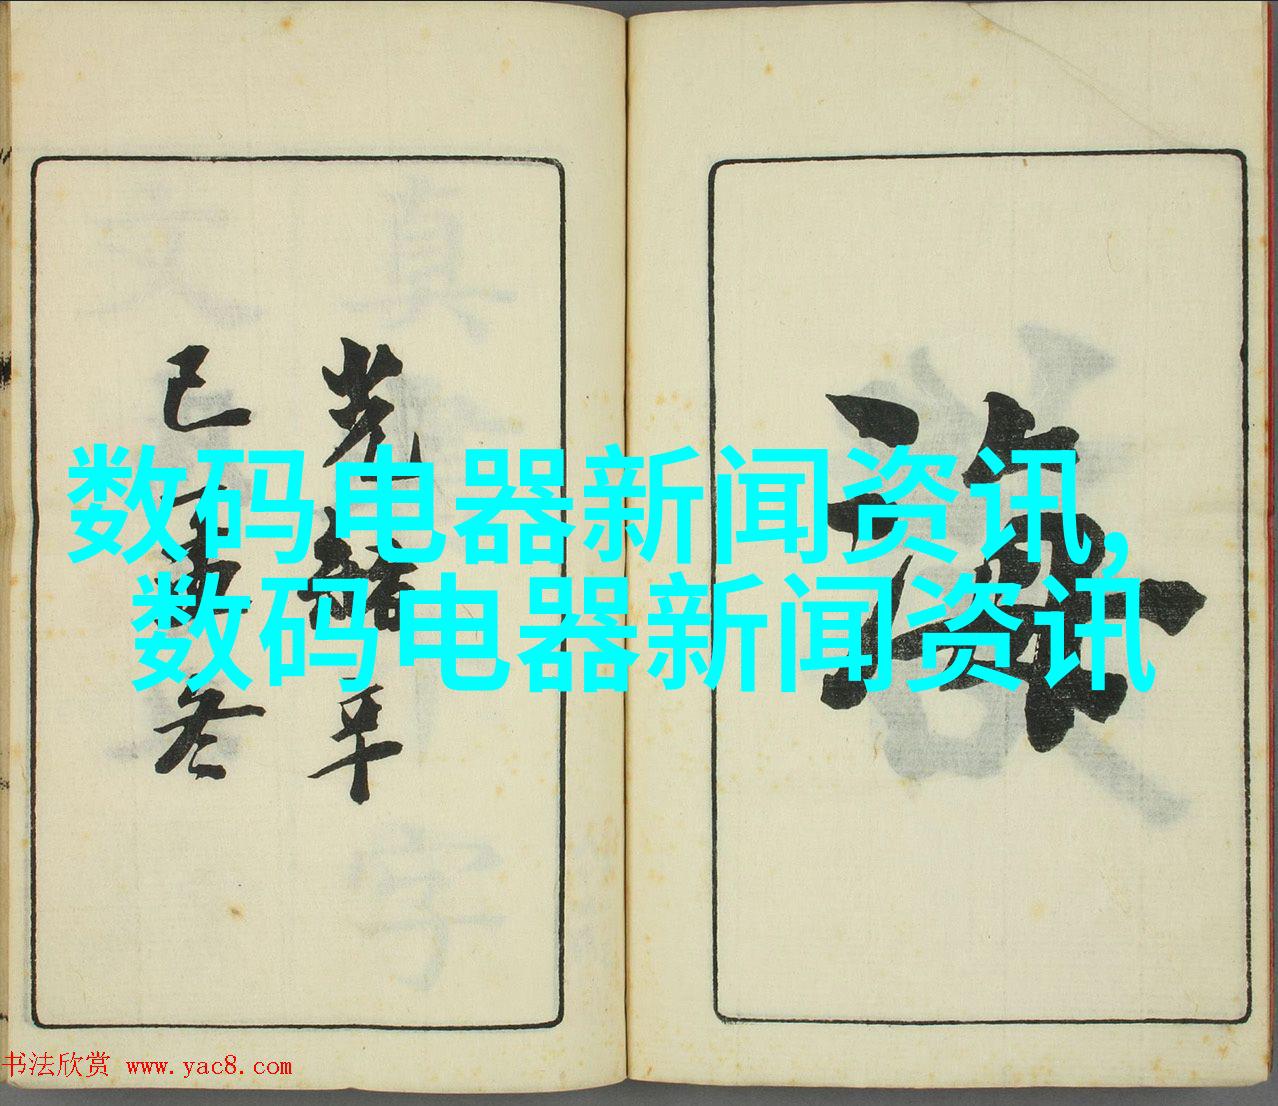 光緒年
己冬
数码电器新闻资讯,
数码电器新闻资讯
书法欣赏 www.yac8.com